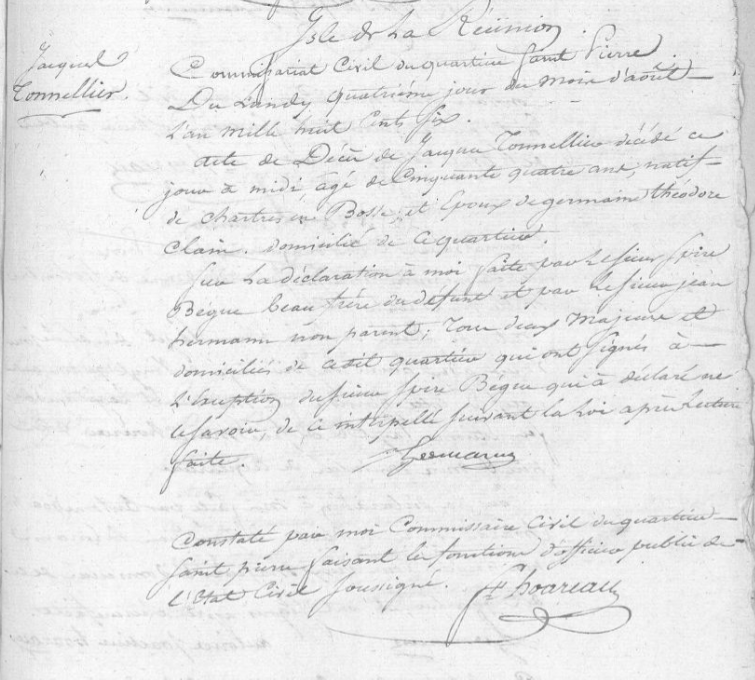 Isle de La Réunion
Jacques
Tonnellier.
Commissariat Civil du quartier Saint Pierre
Du Lundy quatriéme jour du mois d'août
L'an mille huit cents six.
Acte de Décès de Jacques Tonnellier décédé ce
jour à midi, agé de Cinquante quatre ans, natif
de chartres en Bosse, et Epoux de germaine théodore
Clain. domicilié de ce quartier.
Sur La déclaration à moi faite par Le Sieur Spire
Bégue beau frère du défunt et par Le Sieur jean
hermann non parent; tous deux Majeurs et
domiciliés de cedit quartier qui ont signés à
L'Exception du Sieur Spire Bégue qui à déclaré ne
le savoir de ce interpellé suivant la Loi après Lecture
faite.
Constaté par moi Commissaire Civil du quartier
Saint pierre faisant les fonctions d'officier public de
l'Etat Civil Soussigné. hoareau